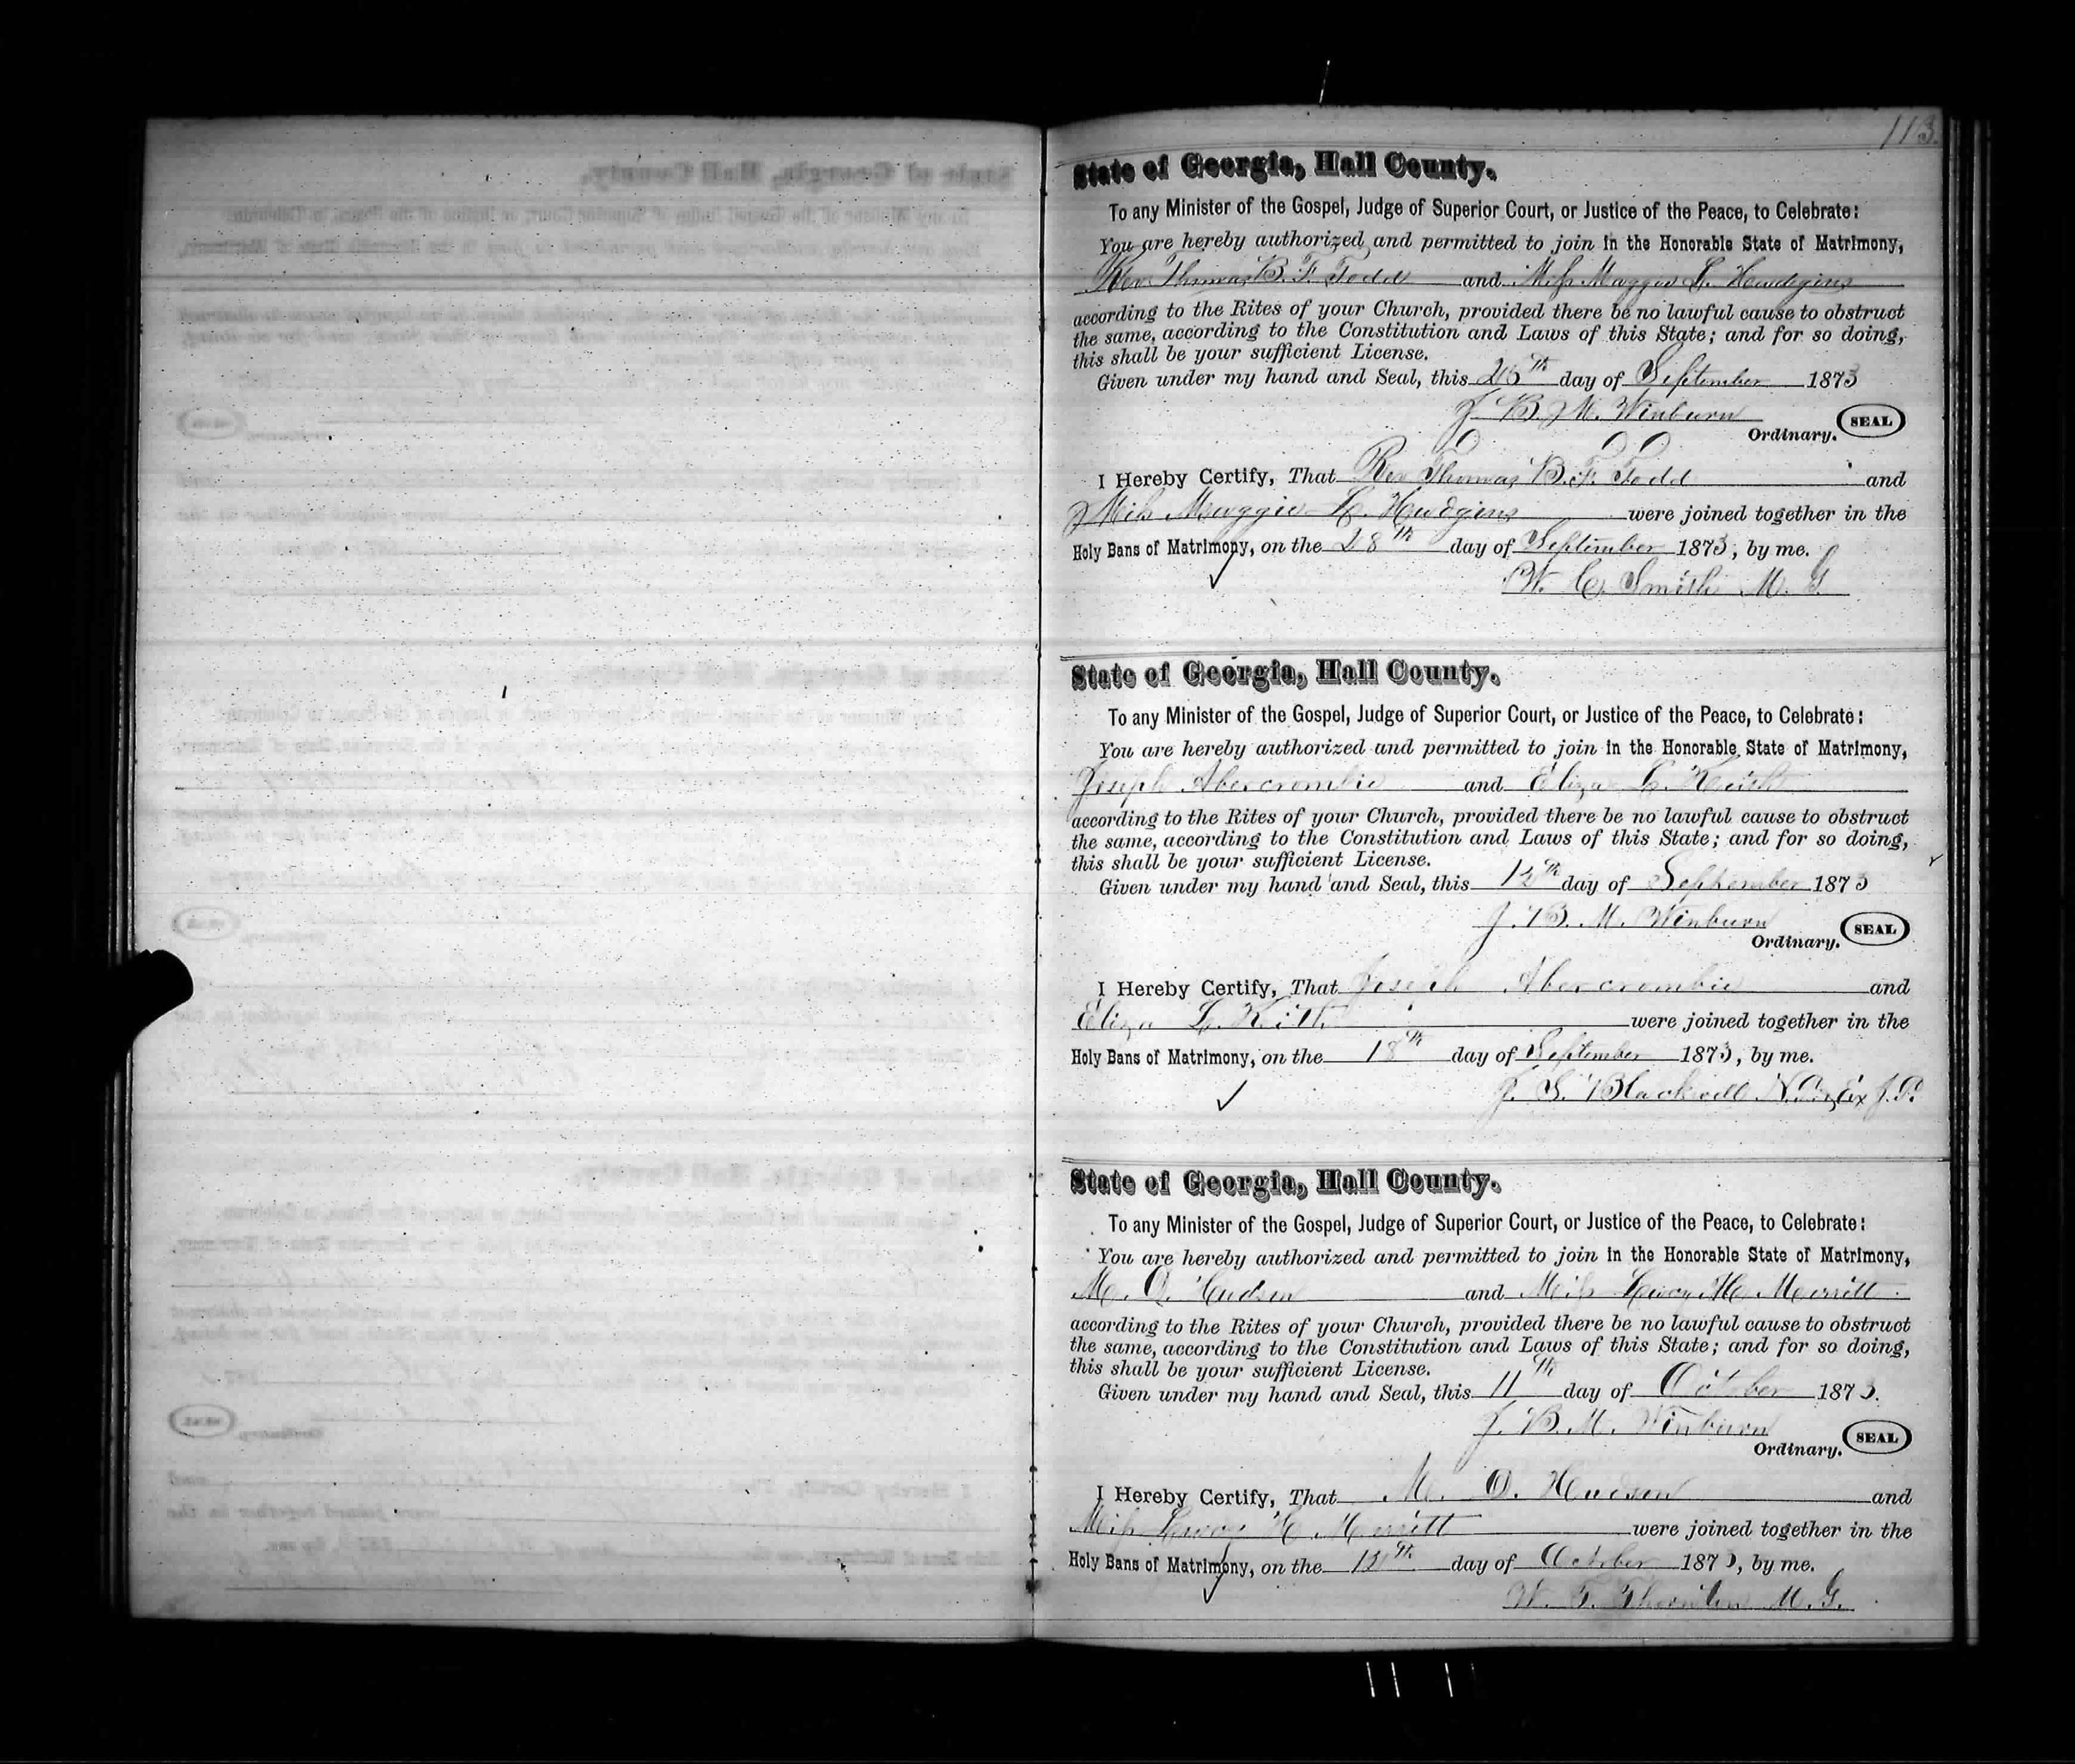 113.
State of Georgia, Hall County.
To any Minister of the Gospel, Judge of Superior Court, or Justice of the Peace, to Celebrate:
You are hereby authorized and permitted to join in the Honorable State of Matrimony,
Rev Thomas B. F. Todd and Miss Maggie L. Hudgins
according to the Rites of your Church, provided there be no lawful cause to obstruct
the same, according to the Constitution and Laws of this State; and for so doing,
this shall be your sufficient License.
Given under my hand and Seal, this 26th day of September 1873
J. B. M. Winburn
Ordinary. SEAL
I Hereby Certify, That Rev Thomas B. F. Todd and
Miss Maggie L. Hudgins were joined together in the
Holy Bans of Matrimony, on the 28th day of September 1873, by me.
W. C. Smith M. G.
State of Georgia, Hall County.
To any Minister of the Gospel, Judge of Superior Court, or Justice of the Peace, to Celebrate:
You are hereby authorized and permitted to join in the Honorable State of Matrimony,
Joseph Abercrombie and Eliza L.
according to the Rites of your Church, provided there be no lawful cause to obstruct
the same, according to the Constitution and Laws of this State; and for so doing,
this shall be your sufficient License.
Given under my hand and Seal, this day of September 1873
J. B. M. Winburn
Ordinary. SEAL
I Hereby Certify, That Joseph Abercrombie and
Eliza L. Kith were joined together in the
Holy Bans of Matrimony, on the 18th day of September 1873, by me.
J. S. Blackwell N. P. & Ex J. P.
State of Georgia, Hall County.
To any Minister of the Gospel, Judge of Superior Court, or Justice of the Peace, to Celebrate:
You are hereby authorized and permitted to join in the Honorable State of Matrimony,
M. O. Hudson and Miss H. Merritt
according to the Rites of your Church, provided there be no lawful cause to obstruct
the same, according to the Constitution and Laws of this State; and for so doing,
this shall be your sufficient License.
Given under my hand and Seal, this 11th day of October 1873.
J. B. M. Winburn
Ordinary. SEAL
I Hereby Certify, That M. O. Hudson and
Miss H. Merritt were joined together in the
Holy Bans of Matrimony, on the 13th day of October 1873, by me.
W. T. Thornton M. G.